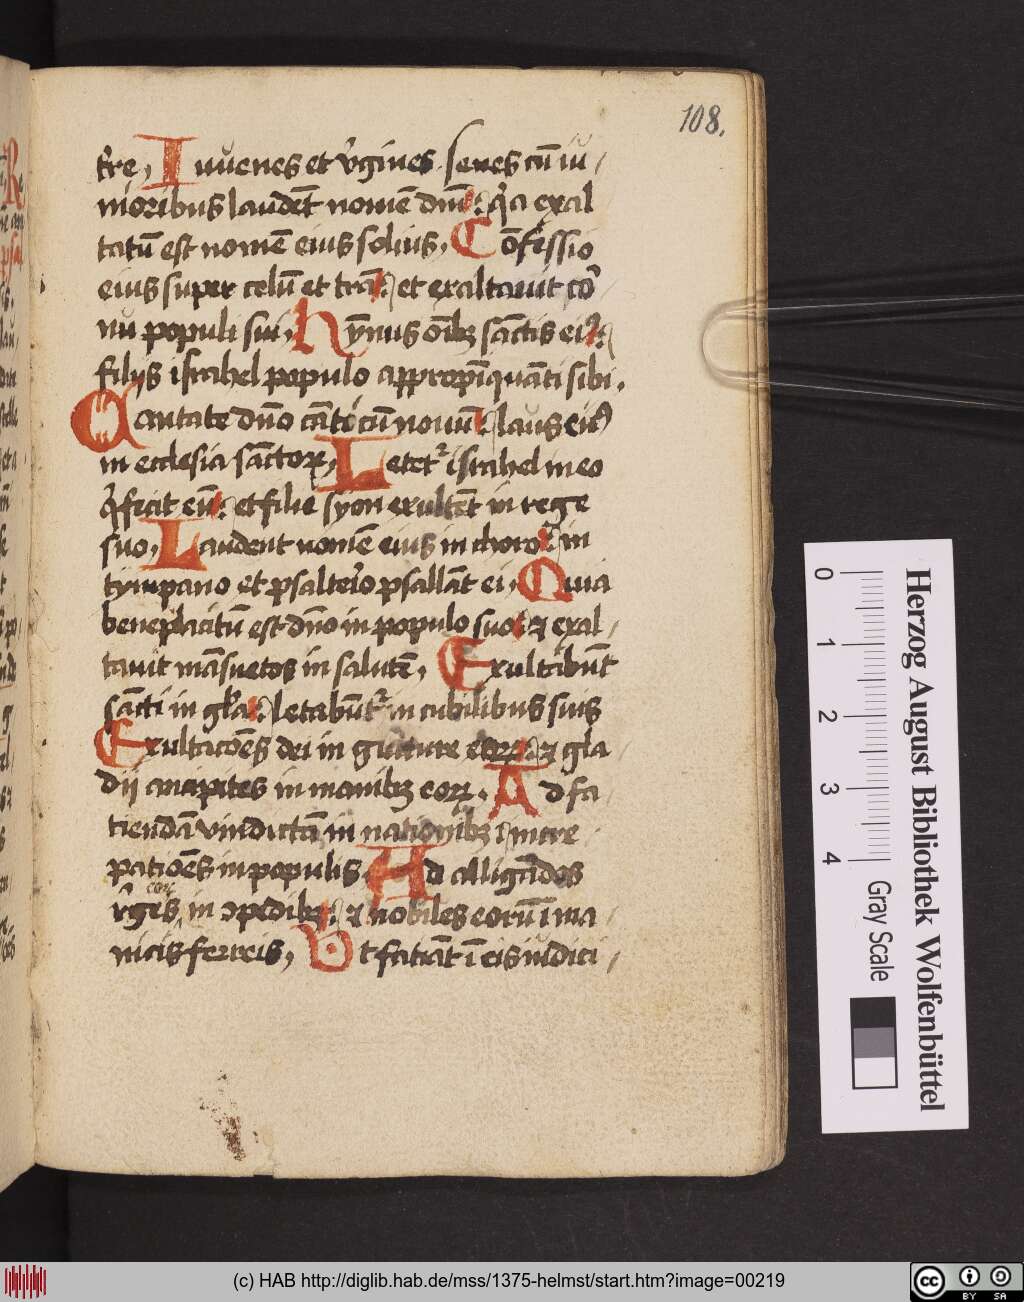 108.
t̄re, Iuuenes et v̄gines senes cū iu
nioribus laudēt nomē dn̄i: qͥa exal
tatū est nomē eius solius, Cōfessio
eius super celū et trā: et exaltauit co᷑
nu populi sui, hymnus oībꝫ sāctis eiꝰ:
filijs israhel populo appropīquāti sibi.
Cantate dn̄o cāticū nouū: laus eiꝰ
in ecclesia sāctoꝝ, Letetᷣ israhel in eo
qͥ fecit eū: et filie syon exultēt in rege
suo, Laudent nomē eius in choro: in
tympano et psalterio psallāt ei, Quia
beneplacitū est dn̄o in populo suo: ⁊ exal
tauit māsuetos in salutē, Exultabūt
sācti in gl̄a: letabūtᷣ in cubilibus suis
Exultacōes dei in gutture eoꝝ: ⁊ gla
dij ancipites in manibꝫ eoꝝ. Ad fa
ciendā vindictā in nationibꝫ: incre
pationēs in populis, Ad alligādos
reges eoꝝ in ꝯpedibꝫ: ⁊ nobiles eorū ī ma
nicis ferreis, Vt faciāt ī eis iudici
Herzog August Bibliothek Wolfenbüttel
0 1 2 3 4
Gray Scale
(c) HAB http://diglib.hab.de/mss/1375-helmst/start.htm?image=00219
cc BY SA